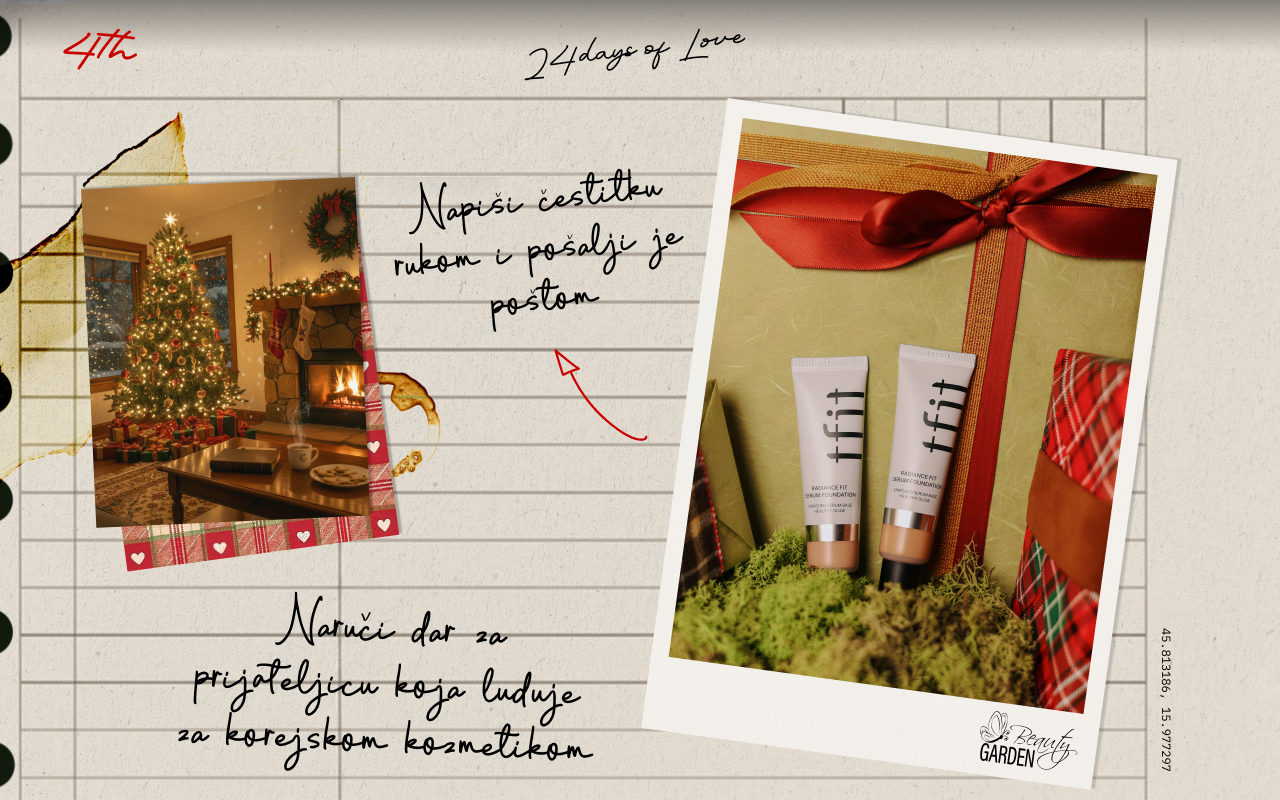 4th
24days of Love
Napiši čestitku
rukom i pošalji je
poštom
tfit
RADIANCE FIT
SERUM FOUNDATION
ENRICHED SERUM BASE
HEALTHY GLOW
tfit
RADIANCE FIT
SERUM FOUNDATION
ENRICHED SERUM BASE
HEALTHY GLOW
Naruči dar za
prijateljicu koja luduje
za korejskom kozmetikom
Beauty
GARDEN
45.813186, 15.977297